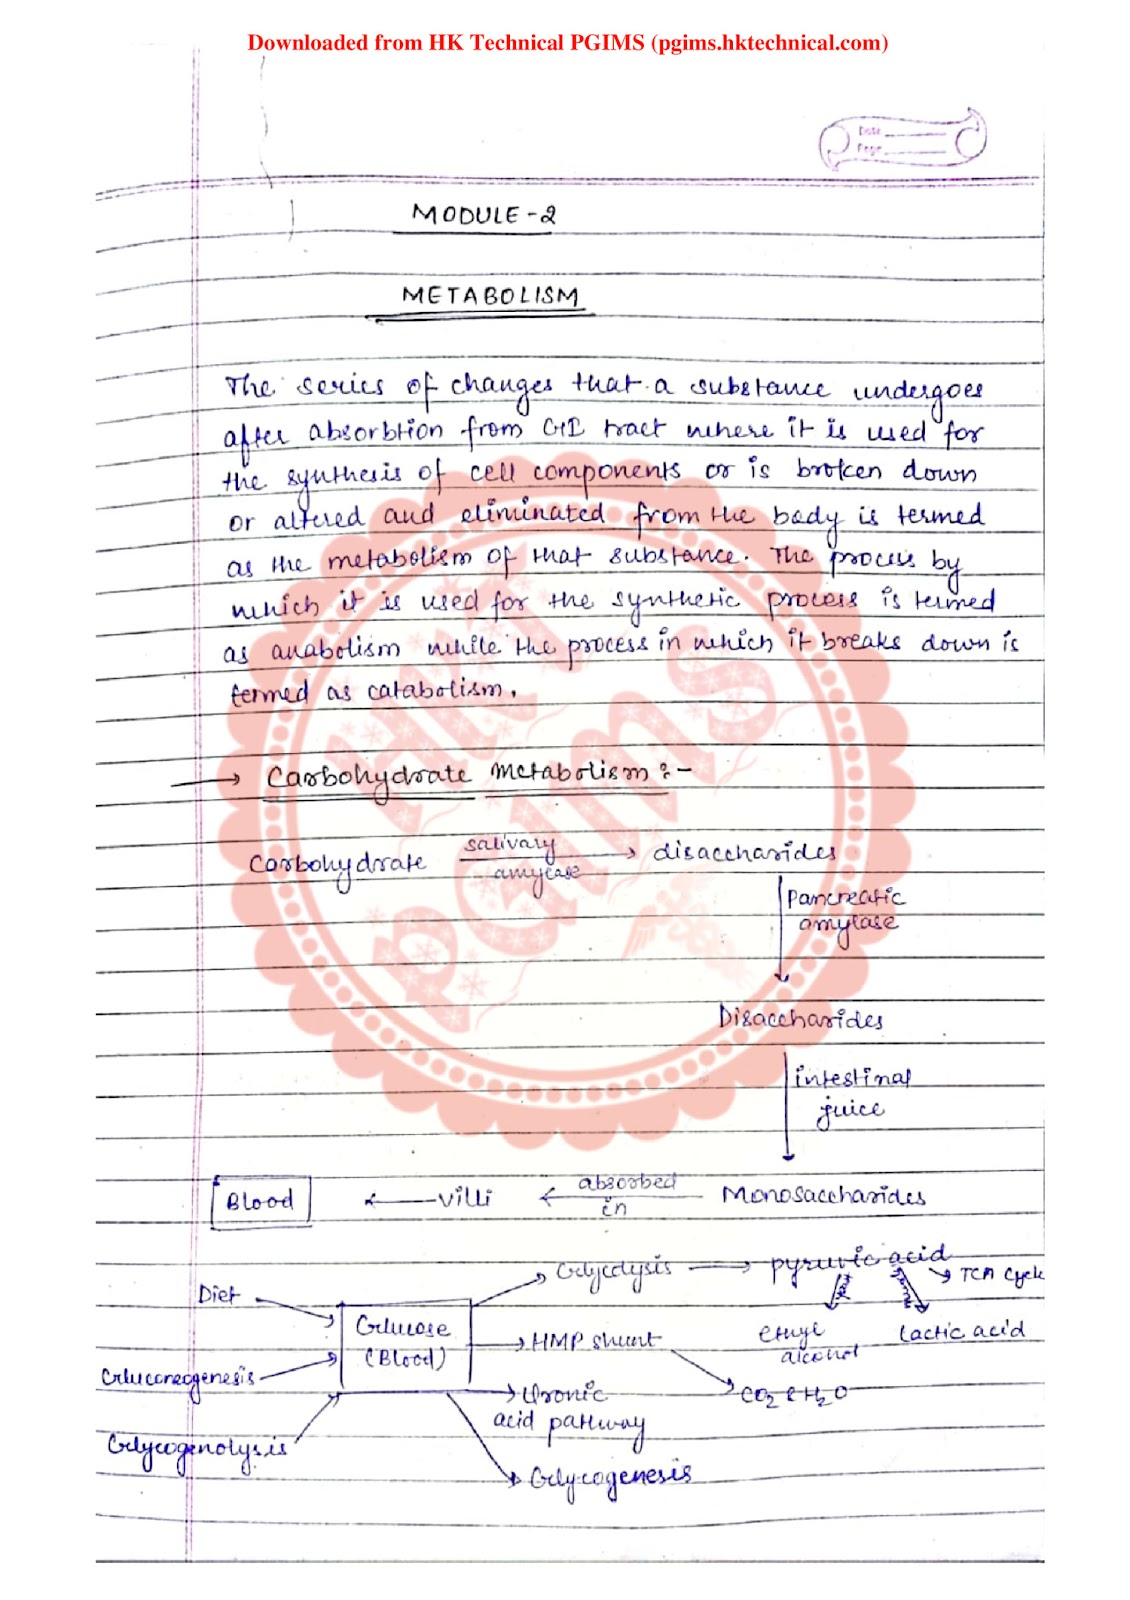 Downloaded from HK Technical PGIMS (pgims.hktechnical.com)
Date
Page
MODULE-2
METABOLISM
The series of changes that a substance undergoes
after absorbtion from GI tract where it is used for
the synthesis of cell components or is broken down
or altered and eliminated from the body is termed
as the metabolism of that substance. The process by
which it is used for the synthetic process is termed
as anabolism while the process in which it breaks down is
termed as catabolism.
→ Carbohydrate Metabolism :-
Carbohydrate salivary amylase → disaccharides
Pancreatic
amylase
Disaccharides
intestinal
juice
Blood ← villi ← absorbed in Monosaccharides
Diet
Glycolysis → pyruvic acid
TCA Cycle
Glucose
(Blood)
HMP shunt
ethyl
alcohol
Lactic acid
Gluconeogenesis
Uronic
acid pathway
CO2 & H2O
Glycogenolysis
Glycogenesis
PGIMS